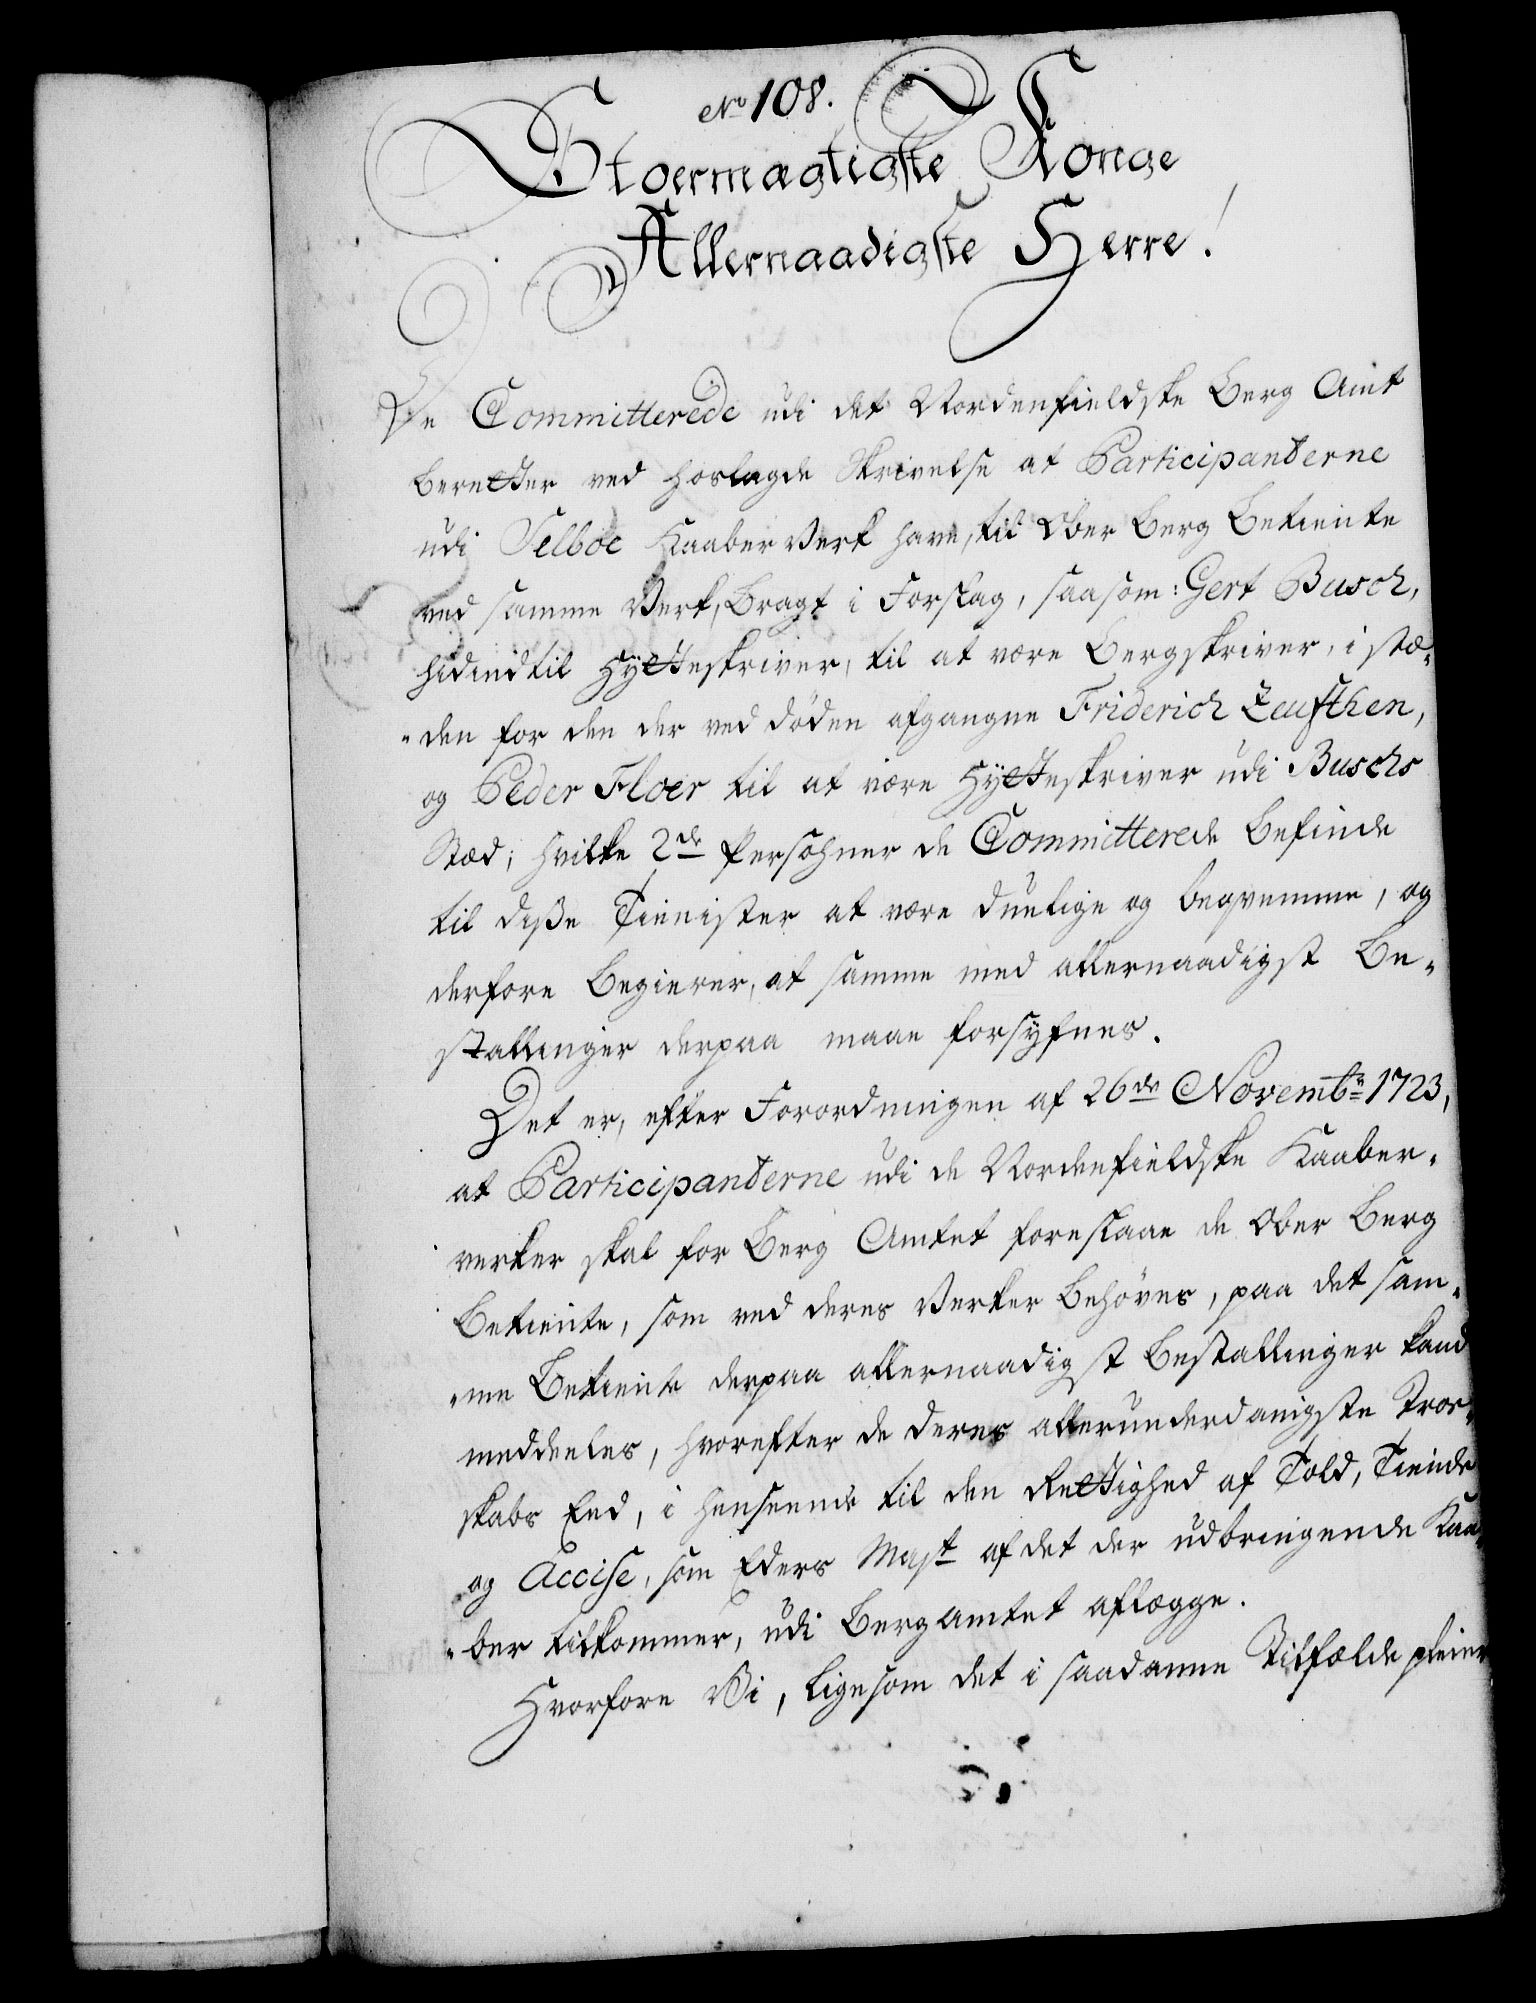 No 108.
Stoermægtigste Konge
Allernaadigste Herre!
De Committerede udi det Nordenfieldske Berg Amt
beretter ved hoslagde Skrivelse at Participanterne
udi Selboe Kaaber Verk have, til Ober Berg Betiente
ved samme Verk, bragt i Forslag, saasom: Gert Busch,
hidindtil Hytteskriver, til at være Bergskriver, i stæ-
-den for den der ved døden afgangne Friderich Leusthen,
og Peder Floer til at være Hytteskriver udi Buschs
Stæd; hvilke 2de Persohner de Committerede befinde
til disse Tienister at være duelige og beqvemme, og
derfore begierer, at samme med allernaadigst Be-
stallinger derpaa maae forsyfnes.
Det er, efter Forordningen af 26de Novembr 1723,
at Participanterne udi de Nordenfieldske Kaaber-
verker skal for Berg Amtet foreslaae de Ober Berg
Betiente, som ved deres Verker behøves, paa det sam-
-me Betiente derpaa allernaadigst Bestallinger kand
meddeeles, hvorefter de deres allerunderdanigste Troe-
skabs Eed, i henseende til den Rettighed af Told, Tiende
og Accise, som Eders Mayt af det der udbringende Kaa-
-ber tilkommer, udi Bergamtet aflægge.
Hvorfore Vi, ligesom det i saadanne Tilfælde pleier